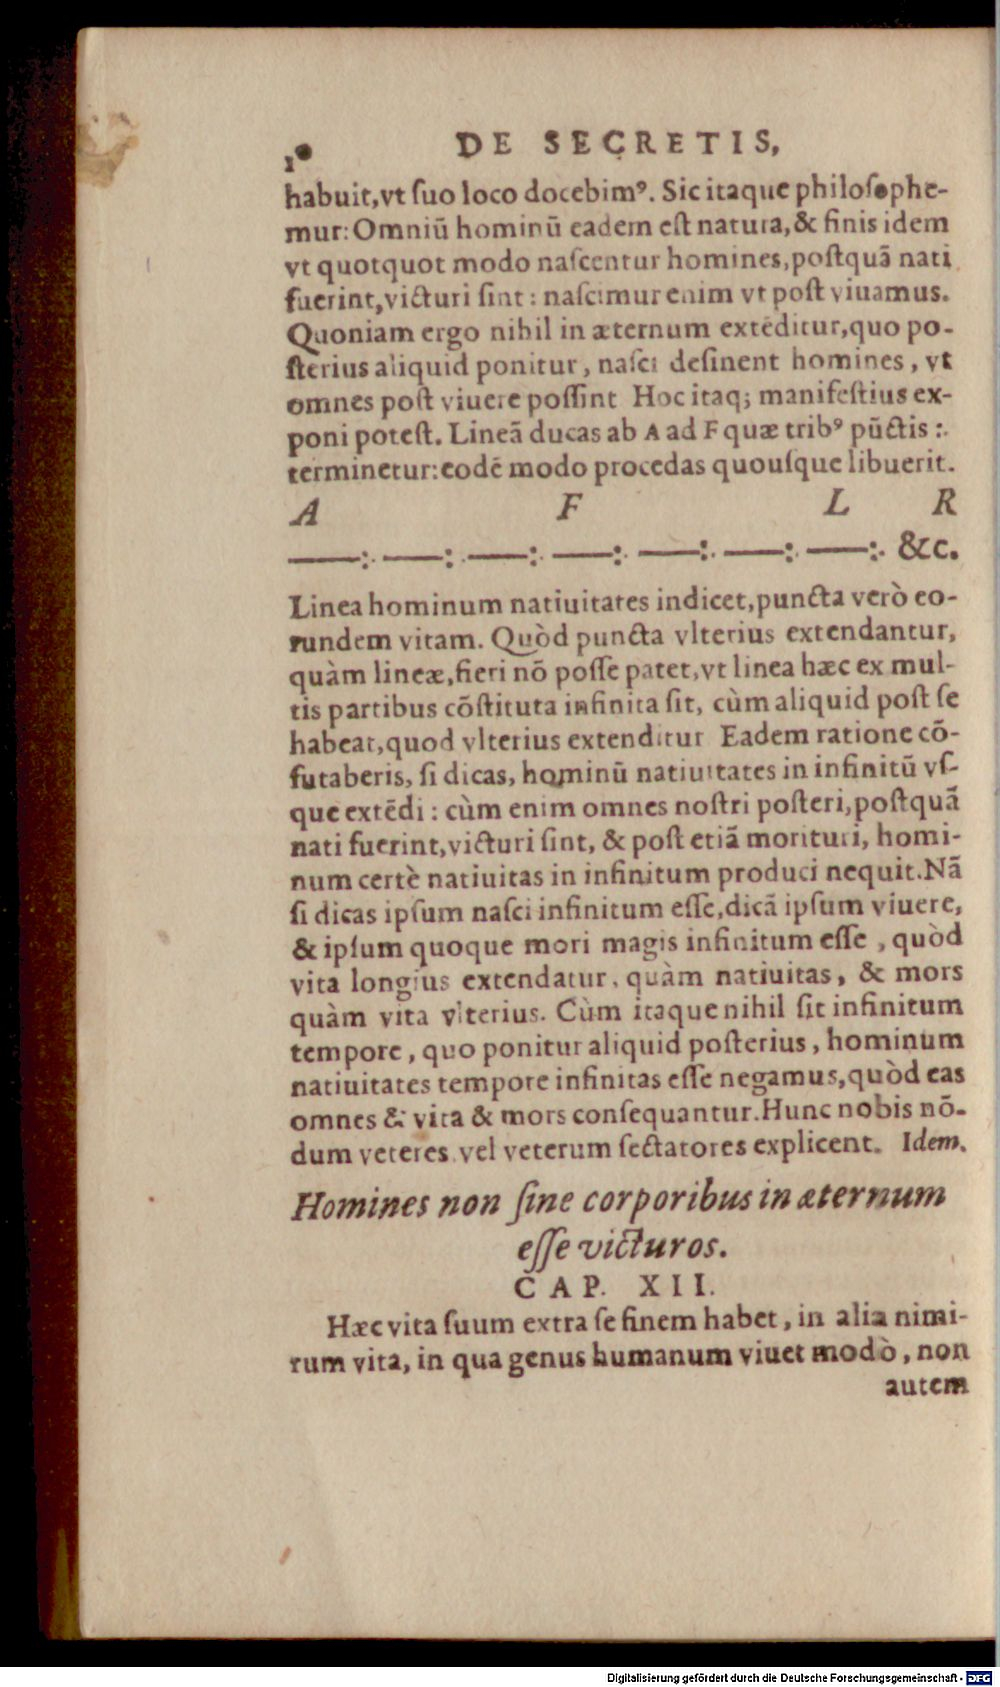 10 DE SECRETIS,
habuit, vt ſuo loco docebimꝰ. Sic itaque philoſophe-
mur: Omniũ hominũ eadem eſt natura, & finis idem
vt quotquot modo naſcentur homines, poſtquã nati
fuerint, victuri ſint: naſcimur enim vt poſt viuamus.
Quoniam ergo nihil in æternum extẽditur, quo po-
ſterius aliquid ponitur, naſci deſinent homines, vt
omnes poſt viuere poſſint Hoc itaq; manifeſtius ex-
poni poteſt. Lineã ducas ab A ad F quæ tribꝰ pũctis :.
terminetur: eodẽ modo procedas quouſque libuerit.
A F L R
——:. ——:. ——:. ——:. ——:. ——:. ——:. &c.
Linea hominum natiuitates indicet, puncta verò eo-
rundem vitam. Quòd puncta vlterius extendantur,
quàm lineæ, fieri nõ poſſe patet, vt linea hæc ex mul-
tis partibus cõſtituta infinita ſit, cùm aliquid poſt ſe
habeat, quod vlterius extenditur Eadem ratione cõ-
futaberis, ſi dicas, hominũ natiuitates in infinitũ vſ-
que extẽdi: cùm enim omnes noſtri poſteri, poſtquã
nati fuerint, victuri ſint, & poſt etiã morituri, homi-
num certè natiuitas in infinitum produci nequit. Nã
ſi dicas ipſum naſci infinitum eſſe, dicã ipſum viuere,
& ipſum quoque mori magis infinitum eſſe, quòd
vita longius extendatur, quàm natiuitas, & mors
quàm vita vlterius. Cùm itaque nihil ſit infinitum
tempore, quo ponitur aliquid poſterius, hominum
natiuitates tempore infinitas eſſe negamus, quòd eas
omnes & vita & mors conſequantur. Hunc nobis nõ-
dum veteres vel veterum ſectatores explicent. Idem.
Homines non ſine corporibus in æternum
eſſe victuros.
CAP. XII.
Hæc vita ſuum extra ſe finem habet, in alia nimi-
rum vita, in qua genus humanum viuet modò, non
autem
Digitalisierung gefördert durch die Deutsche Forschungsgemeinschaft - DFG